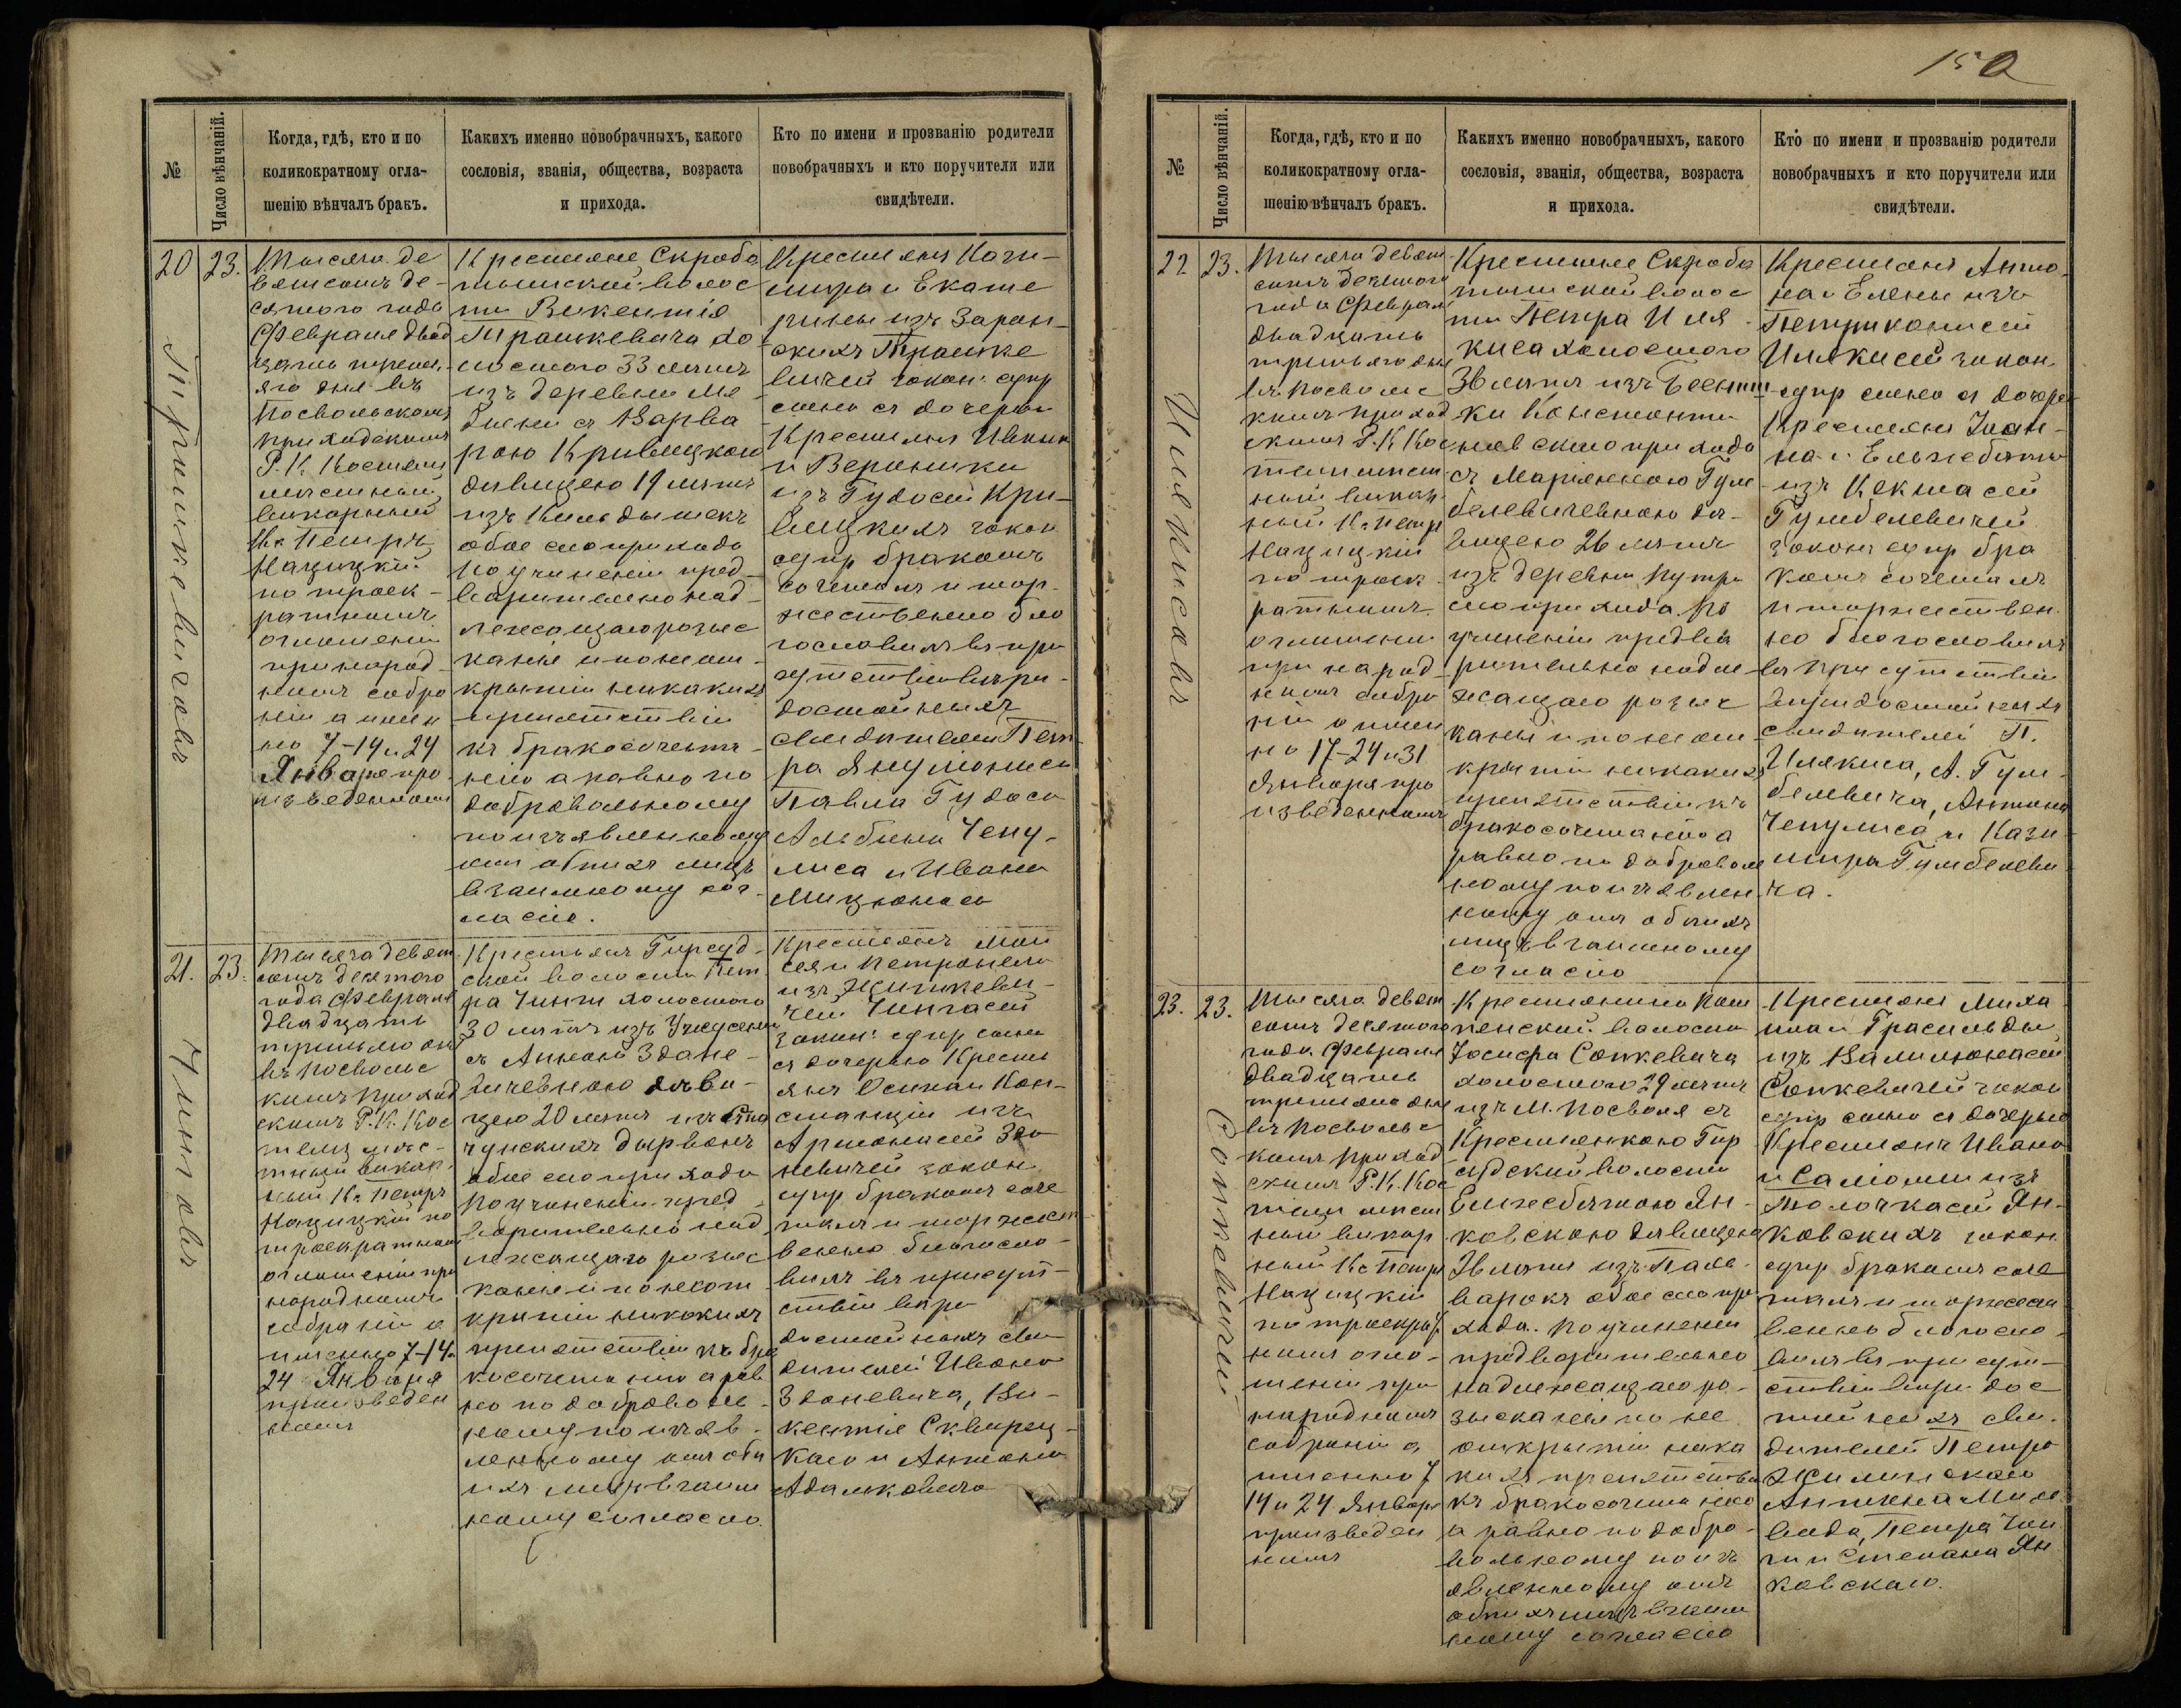 №
Число вѣнчаній.
Когда, гдѣ, кто и по
коликократному огла-
шенію вѣнчалъ бракъ.
Какихъ именно новобрачныхъ, какого
сословія, званія, общества, возраста
и прихода.
Кто по имени и прозванію родители
новобрачныхъ и кто поручители или
свидѣтели.
20
23.
Трашкевичовъ
Тысяча де
вятсотъ де-
сятого года
Февраля двад
цать треть-
яго дня въ
Посвольскомъ
приходскомъ
Р. К. Костелѣ
мѣстный
викарный
Кс Петръ
Нацицкій
по троек-
ратномъ
оглашеніи
при народ-
номъ собра
ніи а имен
но 7-14 и 24
Января про
изведенномъ
Крестьяне Скробо
тышской волос
ти Викентія
Трашкевича хо
лостого 33 лѣтъ
изъ деревни Ме
съ Варва
рою Кривицкою
дѣвицею 19 лѣтъ
изъ Кильдышекъ
обое сего прихода
По учиненіи пред-
варительно над-
лежащаго розыс
канія и по неот-
крытіи никакихъ
препятствій
къ бракосочета-
нію а равно по
добровольному
по изъявленному
ими обоихъ лицъ
взаимному сог-
ласію.
Крестьянъ Кази-
мира и Екате
рины изъ Заран-
скихъ Трашке
вичей закон: супр
сына съ дочерью
Крестьянъ Ивана
и Вероники
изъ Гудосей Кри-
вицкихъ закон
супр бракомъ
сочеталъ и тор-
жественно бла
гословилъ въ при
сутствіи вѣро-
достойныхъ
свидѣтелей Пет-
ра Янумониса
Павла Гудоса
Альбина Чепу-
лиса и Ивана
Мицкониса
21.
23.
Чинговъ
Тысяча девят
сотъ десятого
года Февраля
двадцать
третьяго дня
въ Посвольс
комъ приход
скомъ Р. К. Кос
телѣ мѣс-
тный викар-
ный Кс Петръ
Нацицкій по
троекратномъ
оглашеніи при
народномъ
собраніи а
именно 7-14 и
24 Января
произведен
номъ
Крестьянъ Гирсуд-
ской волости Пет
ра Чинги холостого
30 лѣтъ изъ
съ Анною Здане-
вичевною дѣви-
цею 20 лѣтъ изъ
чунскихъ дырвонъ
обое сего прихода
По учиненіи пред
варительно над
лежащаго розыс
канія и по неот
крытіи никакихъ
препятствій къ бра
косочетанію а рав
но по доброволь-
ному по изъяв-
ленному отъ обо
ихъ лицъ взаим
ному согласію.
Крестьянъ Мои
сея и Петронели
изъ Жинкеви-
чей Чингасей
закон: супр сына
съ дочерью Кресть
янъ Осипа и Кон-
станціи изъ
Армонасей Зда
невичей закон
супр бракомъ соче
талъ и торжест-
венно благосло-
вилъ въ присут-
ствіи вѣро
достойныхъ сви
дѣтелей Ивана
Здоневича, Ви-
кентія Сквирец-
каго и Антона
Адамковича
150
№
Число вѣнчаній.
Когда, гдѣ, кто и по
коликократному огла-
шенію вѣнчалъ бракъ.
Какихъ именно новобрачныхъ, какого
сословія, званія, общества, возраста
и прихода.
Кто по имени и прозванію родители
новобрачныхъ и кто поручители или
свидѣтели.
22
23.
Илякисовъ
Тысяча девят
сотъ десятого
года Февраля
двадцать
третьяго дня
въ Посвольс
комъ приход
скомъ Р. К. Кос
телѣ мѣст
ный викар-
ный Кс Петръ
Нацицкій
по троек-
ратномъ
оглашеніи
при народ-
номъ собра
ніи а имен
но 17-24 и 31
Января про
изведенномъ
Крестьяне Скробо
тышской волос
ти Петра Иля-
киса холостого
38 лѣтъ изъ
ки Константи
новскаго прихода
съ Маріянною Гум
белевичевною дѣ-
вицею 26 лѣтъ
изъ деревни Путри
сего прихода. По
учиненіи предва
рительно надле
жащаго розыс
канія и по неот
крытіи никакихъ
препятствій къ
бракосочетанію а
равно по доброволь
ному по изъявлен
ному отъ обоихъ
лицъ взаимному
согласію
Крестьянъ Анто
на и Елены изъ
Петриконисей
Илякисей закон.
супр сына съ дочерью
Крестьянъ Іоан-
на и Ельжебеты
изъ Кекшасей
Гумбелевичей
закон супр бра
комъ сочеталъ
и торжествен
но благословилъ
въ присутствіи
вѣродостойныхъ
свидѣтелей П.
Илякиса, А. Гум-
белевича, Антона
Чепулиса и Кази
мира Гумбелеви
ча.
23.
23.
Сопкевичей
Тысяча девят
сотъ десятого
года Февраля
двадцать
третьяго дня
въ Посвольс
комъ приход
скомъ Р. К. Кос
телѣ мѣст
ный викар
ный Кс Петръ
Нацицкій
по троекрат
номъ огла-
шеніи при
народномъ
собраніи а
именно 7
14 и 24 Января
произведен
номъ
Крестьянина Пом
пенской волости
Іосифа Сопкевича
холостого 29 лѣтъ
изъ М. Посволя съ
Крестьянкою Гир
судской волости
Ельжебетою Ян-
ковскою дѣвицею
28 лѣтъ изъ Паль-
варокъ обое сего при
хода. По учиненіи
предварительно
надлежащаго ро-
зысканія по не
открытіи ника
кихъ препятствій
къ бракосочетанію
а равно по добро-
вольному по изъ
явленному отъ
обоихъ лицъ взаим
ному согласію
Крестьянъ Миха
ила и Грасильды
изъ Валилюнасей
Сопкевичей закон
супр сына съ дочерью
Крестьянъ Ивана
и Саломеи изъ
Молочкасей Ян-
ковскихъ закон
супр бракомъ соче
талъ и торжест
венно благосло-
вилъ въ присут-
ствіи вѣродос
тойныхъ сви-
дѣтелей Петра
Жилинскаго
Антона Миле
вида, Петра Чин
ги и Степана Ян
ковскаго.